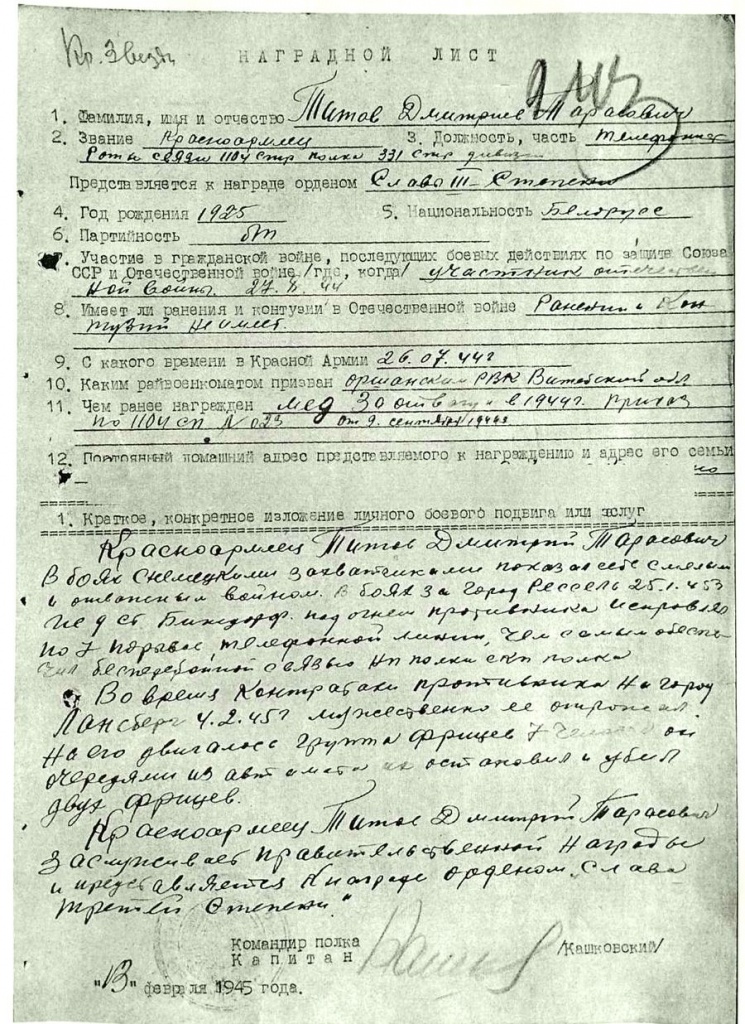 Кр. Звезды
НАГРАДНОЙ ЛИСТ
1. Фамилия, имя и отчество Титов Дмитрий Тарасович
2. Звание Красноармеец 3. Должность, часть Телефонист
Роты связи 1104 стр полка 331 стр дивизи
Представляется к награде орденом Слава III-Степени
4. Год рождения 1925 5. Национальность Белорус
6. Партийность б/п
7. Участие в гражданской войне, последующих боевых действиях по защите Союза
ССР и Отечественной войне /где, когда/ участник отечествен
ной войны.
8. Имеет ли ранения и контузии в Отечественной войне Ранении и Кон
тузий не имеет.
9. С какого времени в Красной Армии 26.07.44г
10. Каким райвоенкоматом призван Оршанским РВК Витебской обл
11. Чем ранее награжден мед За отвагу в 1944г. приказ
по 1104 сп N 023 от 9. сентября 1944г
12. Постоянный домашний адрес представляемого к награждению и адрес его семьи
1. Краткое, конкретное изложение личного боевого подвига или заслуг
Красноармеец Титов Дмитрий Тарасович
В боях с немецкими захватчиками показал себе смелым
и отважным войном. В боях за город Рессель 25.1.45г
под огнем противника исправлял
по 7 порывов телефонной линии, чем самым обеспе-
чил бесперебойной связью нп полка с кп полка
Во время контратаки противника на город
Лансберг 4.2.45г мужественно ее отражал.
На его двигалось группа фрицев 7 человек он
очередями из автомата их остановил и убил
двух фрицев.
Красноармеец Титов Дмитрий Тарасович
заслуживает правительственной награды
и представляется к награде орденом „Слава
третей Степени"
Командир полка
Капитан /Кашковский/
"13" февраля 1945 года.